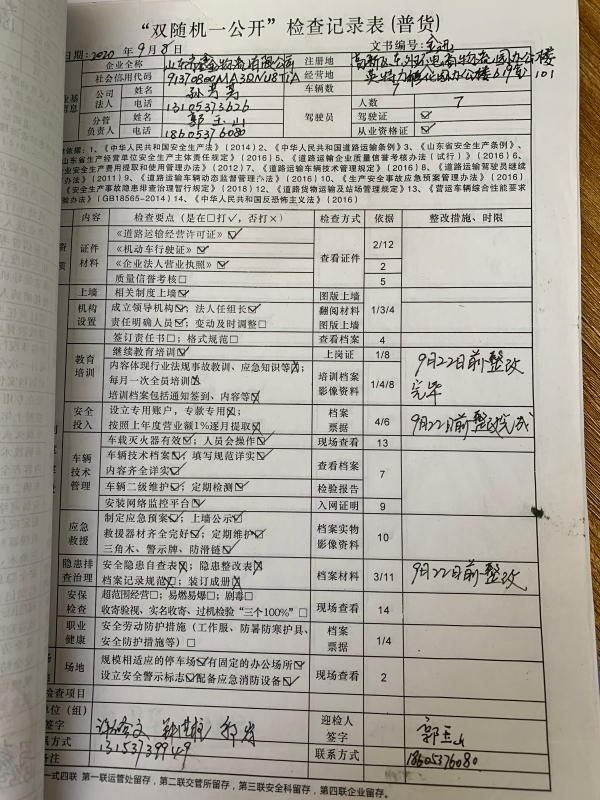 “双随机一公开”检查记录表(普货)
日期: 2020 年 9 月 8 日 文书编号:
企业全称 山东 物流有限公司 注册地
社会信用代码 91370800MA3QNU8T1A 经营地 101
公司法人 姓名 车辆数
电话 13105373626 驾驶员 人数 7
分管负责人 姓名 郭玉山 驾驶证☑
电话 18605376080 从业资格证☑
依据:1、《中华人民共和国安全生产法》(2014)2、《中华人民共和国道路运输条例》3、《山东省安全生产条例》、
《山东省生产经营单位安全生产主体责任规定》(2016)5、《道路运输企业质量信誉考核办法(试行)》(2016)6、
企业安全生产费用提取和使用管理办法》(2012)7、《道路运输车辆技术管理规定》(2016)8、《道路运输驾驶员继续
办法》(2011)9、《道路运输车辆动态监督管理办法》(2016)10、《生产安全事故应急预案管理办法》(2016)
《安全生产事故隐患排查治理暂行规定》(2018)12、《道路货物运输及站场管理规定》13、《营运车辆综合性能要求
检验办法》(GB18565-2014)14、《中华人民共和国反恐怖主义法》(2016)
内容 检查要点(是在□打✓,否打×) 检查方式 依据 整改措施、时限
证件材料 《道路运输经营许可证》☑ 查看证件 2/12
《机动车行驶证》☑
《企业法人营业执照》☑ 2
质量信誉考核□ 5
上墙 相关制度上墙☑ 图版上墙 1/3/4
机构设置 成立领导机构☑;法人任组长☑ 翻阅材料
责任明确人员☑;变动及时调整□ 图版上墙
教育培训 签订责任书□;格式规范□ 查看档案 4
继续教育培训☑ 上岗证 1/8
内容体现行业法规事故教训、应急知识等☒; 培训档案 影像资料 1/4/8 9月22日前整改完毕
每月一次全员培训☒
培训档案包括通知签到、内容等☒
安全投入 设立专用账户,专款专用☒; 档案 票据 4/6 9月22日前整改完成
按照上年度营业额1%逐月提取☒
车辆技术管理 车载灭火器有效☑;人员会操作☑ 现场查看 13
车辆技术档案☑,填写规范详实☑ 查看档案 7
内容齐全详实☑
车辆二级维护☑;定期检测☑ 检验报告
安装网络监控平台☑ 入网证明 9
应急救援 制定应急预案☑;上墙公示☑ 档案实物 影像资料 10
救援器材齐全完好☑;定期维护☑
三角木、警示牌、防滑链☑
隐患排查治理 安全隐患自查表☒;隐患整改表☒ 档案材料 3/11 9月22日前整改
档案记录规范☒;装订成册☒
安保检查 超范围经营□;易燃易爆□;剧毒□ 现场查看 14
收寄验视、实名收寄、过机检验“三个100%”□
职业健康 安全劳动防护措施(工作服、防暑防寒护具、 档案 票据 1/4
安全防护措施等)□
场地 规模相适应的停车场☑有固定的办公场所☑ 现场查看 2
设立安全警示标志☑配备应急消防设备☑
检查项目
单位(组) 签字 迎检人 签字 郭玉山
联系方式 13153739949 联系方式 18605376080
备注
一式四联 第一联运管处留存,第二联交管所留存,第三联安全科留存,第四联企业留存。